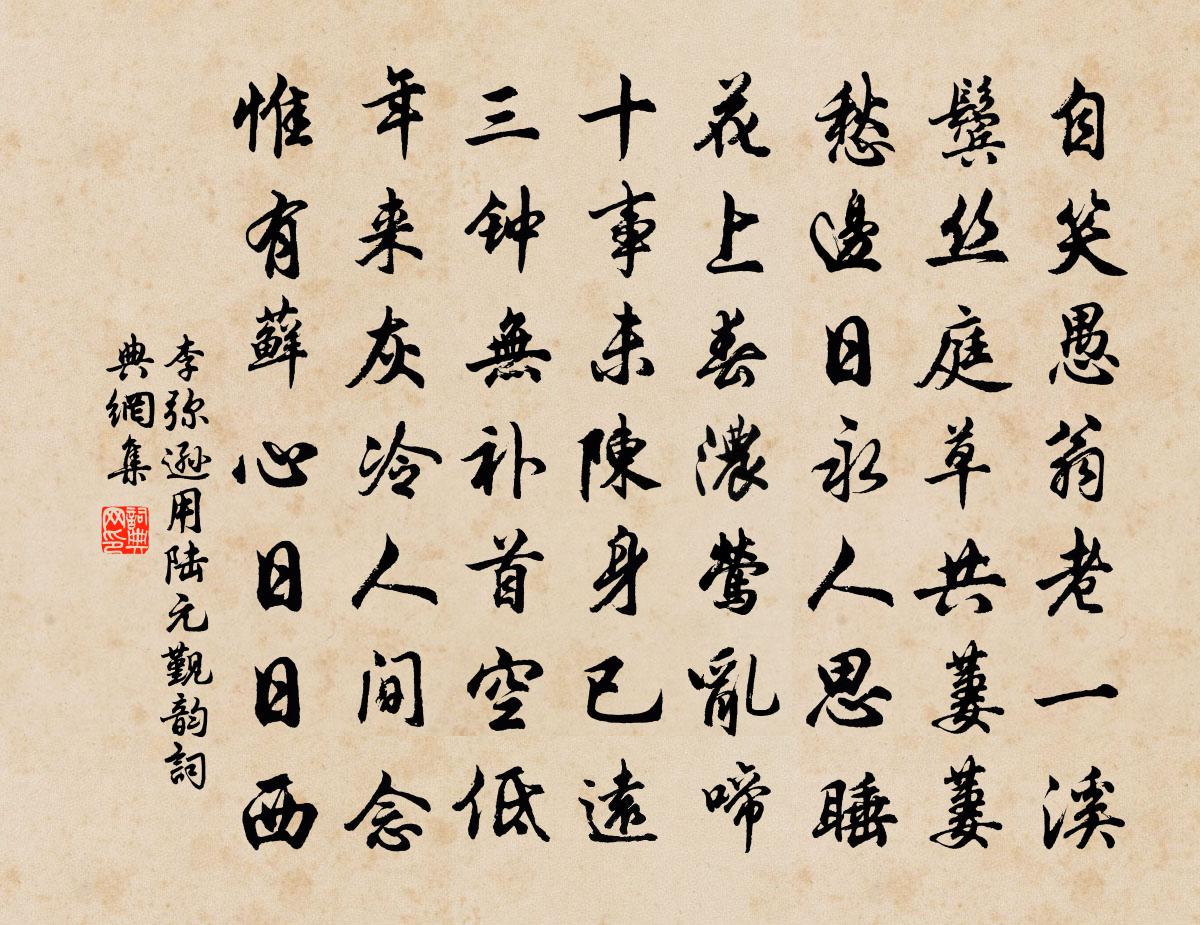 自笑愚翁老一溪
鬓丝庭草共萋萋
愁邊日永人思睡
花上春濃鶯亂啼
十事未陳身已遠
三钟無补首空低
年来灰冷人间念
惟有蘚心日日西
李弥遜用陆元觐韵詞
典網集
詞典网印